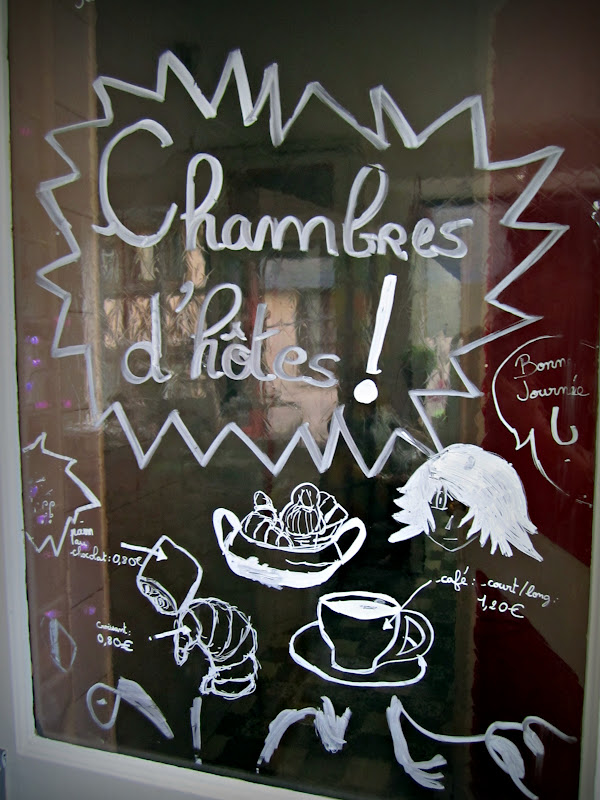 Chambres
d'hôtes !
Bonne
Journée
pain
au
chocolat: 0,80€
café : court/long:
1,20€
Croissant:
0,80€